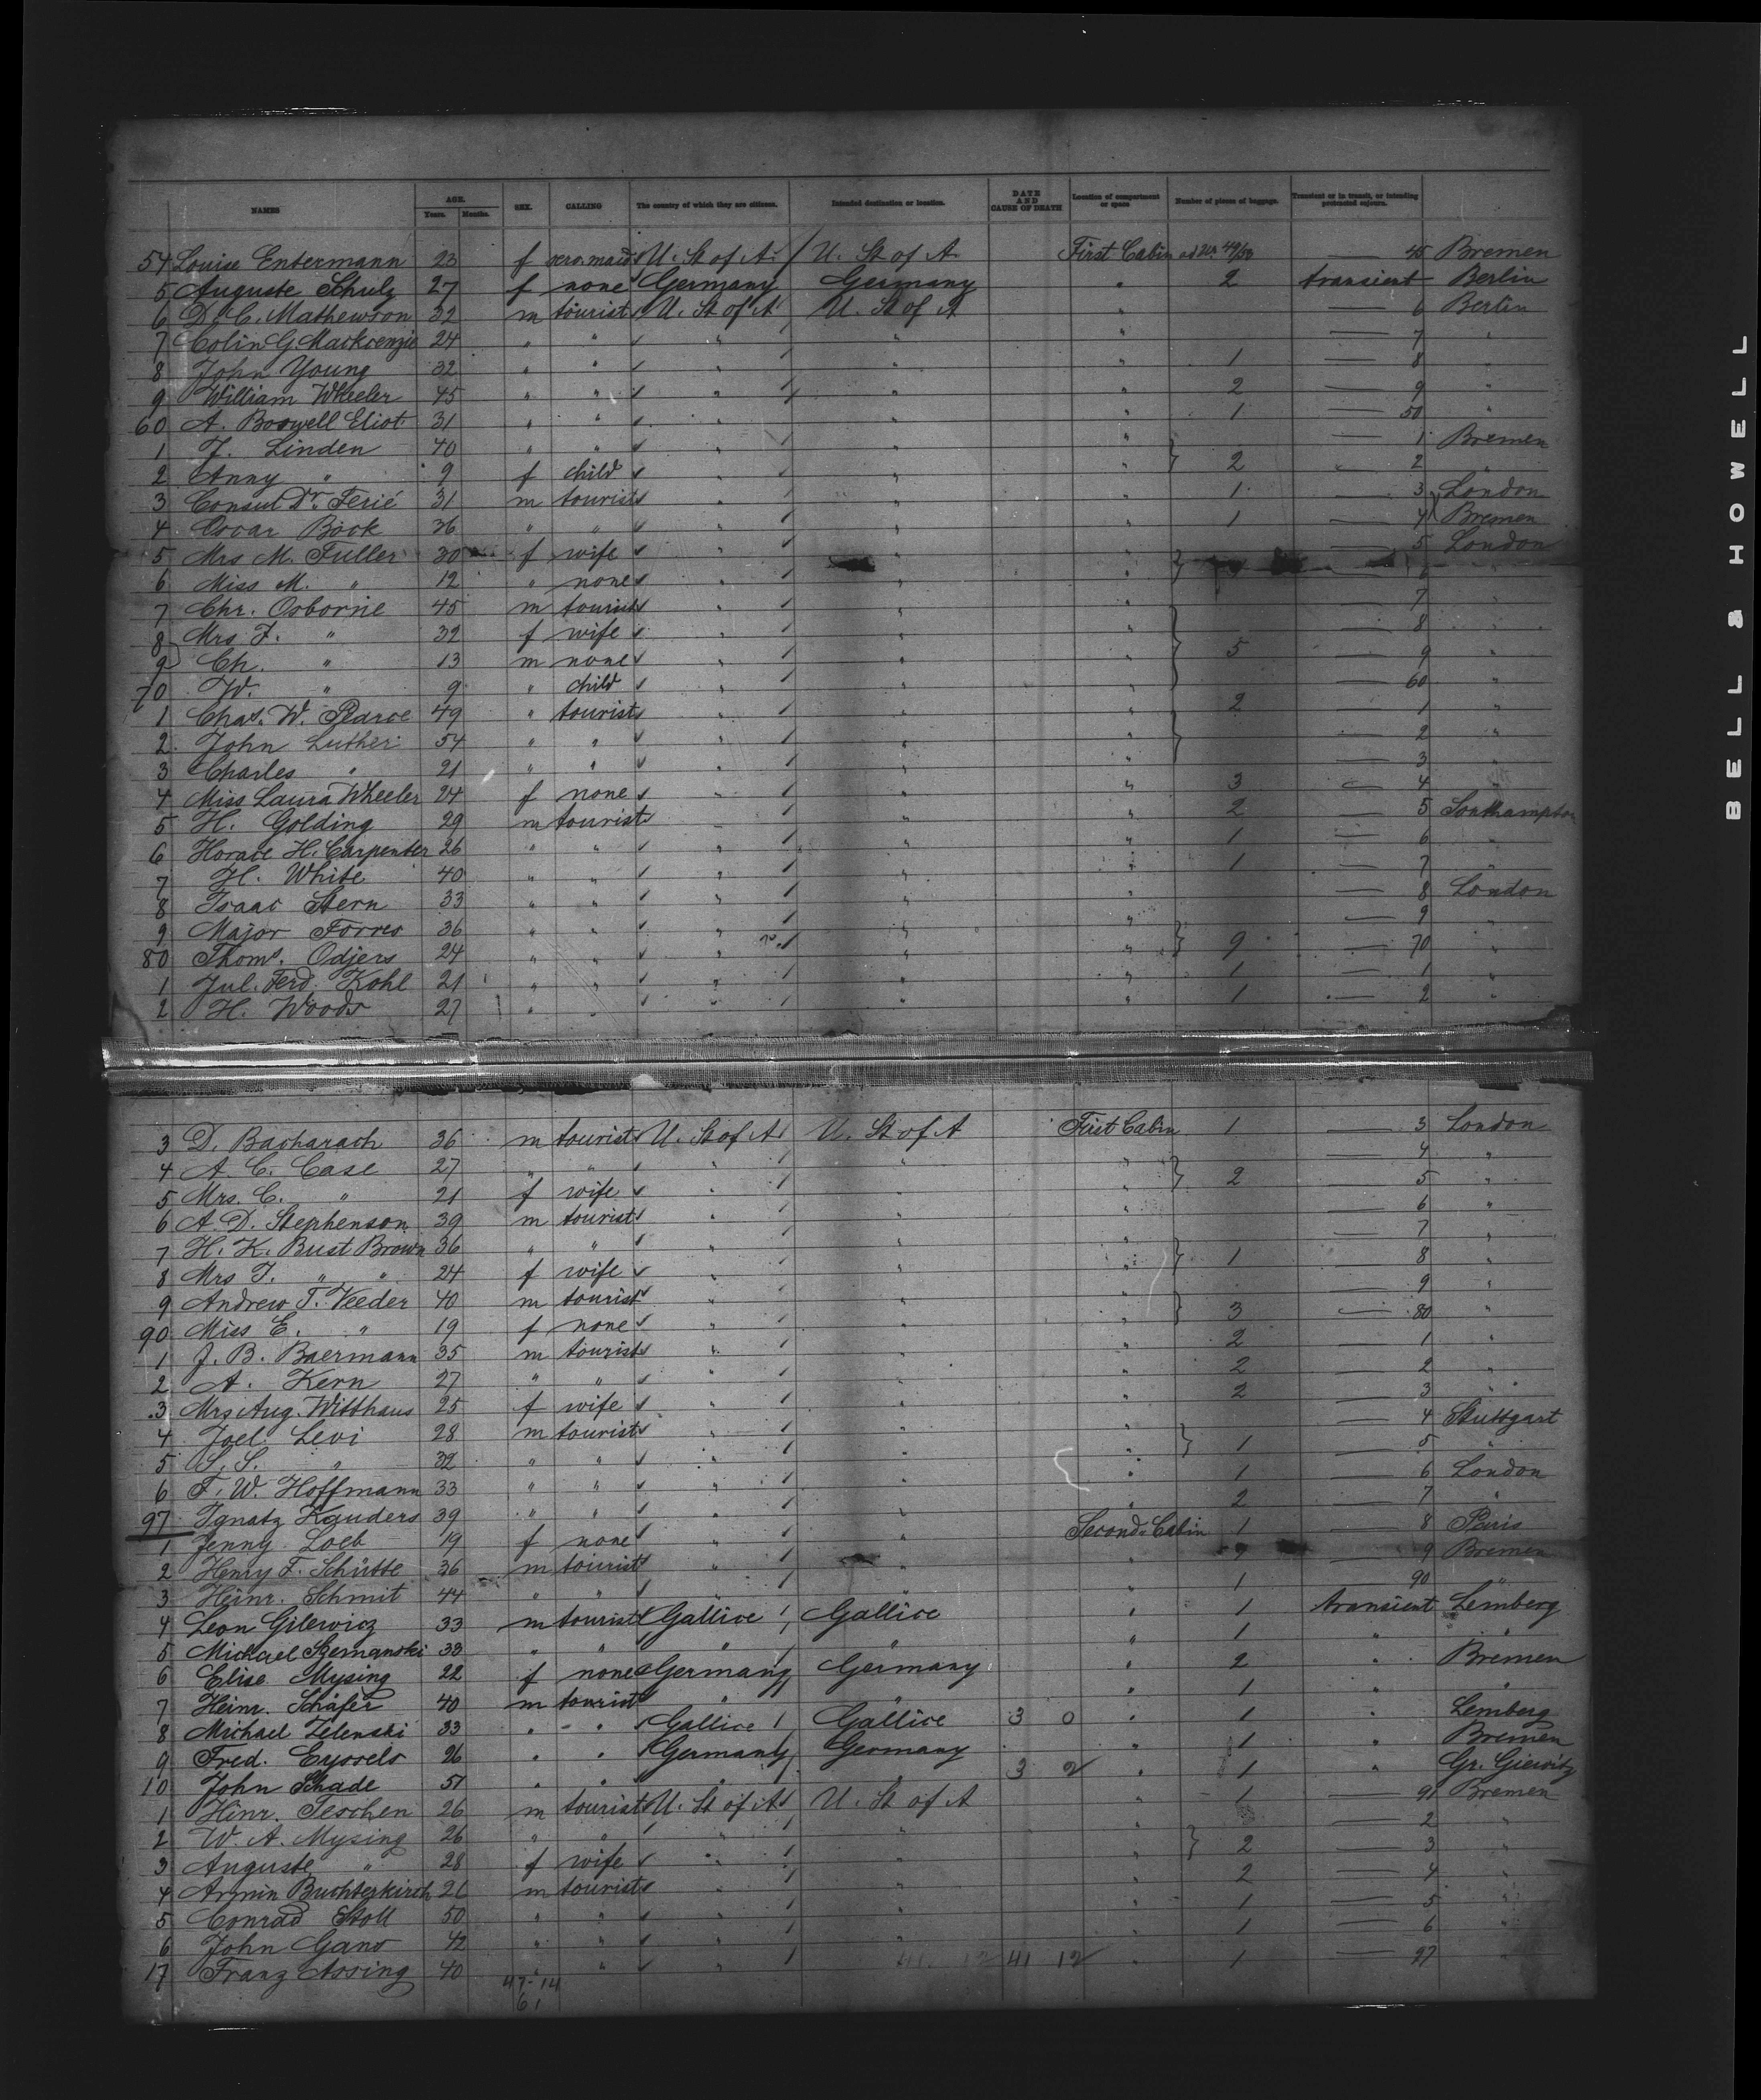 NAMES AGE. Years. Months. SEX. CALLING The country of which they are citizens. Intended destination or location. DATE AND CAUSE OF DEATH Location of compartment or space Number of pieces of baggage. Transient or in transit, or intending protracted sojourn.
54 Louise Entermann 23 f serv. maid U. St of A. U. St of A First Cabin — 45 Bremen
5 Auguste Schulz 27 f none Germany Germany " 2 transient Berlin
6 D. C. Mathewson 32 m tourist U. St of A U. St of A " — 6 Berlin
7 Colin G. Mackenzie 24 " " " " " — 7 "
8 John Young 32 " " " " " 1 — 8 "
9 William Wheeler 45 " " " " " 2 — 9 "
60 A. Boswell Eliot 31 " " " " " 1 — 50 "
1 J. Linden 40 " " " " " — 1 Bremen
2 Anny " 9 f child " " " 2 — 2 "
3 Consul Dr. Ferié 31 m tourist " " " 1 — 3 London
4 Oscar Bock 36 " " " " " 1 — 4 Bremen
5 Mrs M. Fuller 30 f wife " " " — 5 London
6 Miss M. " 12 " none " " " — "
7 Chr. Osborne 45 m tourist " " " — 7 "
8 Mrs F. " 32 f wife " " " — 8 "
9 Ch. " 13 m none " " " 5 — 9 "
70 W. " 9 " child " " " — 60 "
1 Chas. W. Pearce 49 " tourist " " " 2 — 1 "
2 John Luther 54 " " " " " — 2 "
3 Charles " 21 " " " " " — 3 "
4 Miss Laura Wheeler 24 f none " " " 3 — 4 "
5 H. Golding 29 m tourist " " " 2 — 5 Southampton
6 Horace H. Carpenter 26 " " " " " 1 — 6 "
7 H. White 40 " " " " " 1 — 7 "
8 Isaac Stern 33 " " " " " — 8 London
9 Major Forres 36 " " " " " — 9 "
80 Thoms. Odjers 24 " " " " " 9 — 70 "
1 Jul. Ferd. Kohl 21 " " " " " 1 — 1 "
2 H. Woods 27 " " " " " 1 — 2 "
3 D. Bacharach 36 m tourist U. St of A U. St of A First Cabin 1 — 3 London
4 A. C. Case 27 " " " " " — 4 "
5 Mrs. C. " 21 f wife " " " 2 — 5 "
6 A. D. Stephenson 39 m tourist " " " — 6 "
7 H. K. Bust Brown 36 " " " " " — 7 "
8 Mrs T. " " 24 f wife " " " 1 — 8 "
9 Andrew T. Veeder 40 m tourist " " " — 9 "
90 Miss E. " 19 f none " " " 3 — 80 "
1 J. B. Baermann 35 m tourist " " " 2 — 1 "
2 A. Kern 27 " " " " " 2 — 2 "
3 Mrs Aug. Witthaus 25 f wife " " " 2 — 3 "
4 Joel Levi 28 m tourist " " " — 4 Stuttgart
5 S. S. " 32 " " " " " 1 — 5 "
6 F. W. Hoffmann 33 " " " " " 1 — 6 London
97 Ignatz Kauders 39 " " " " " 2 — 7 "
1 Jenny Loeb 19 f none " " Second Cabin 1 — 8 Paris
2 Henry F. Schütte 36 m tourist " " " 2 — 9 Bremen
3 Heinr. Schmit 44 " " " " " 1 90 "
4 Leon Gilewicz 33 m tourist Gallice Gallice " 1 transient Lemberg
5 Michael Szemanski 33 " " " " " 1 " "
6 Elise Mysing 22 f none Germany Germany " 2 " Bremen
7 Heinr. Schäfer 40 m tourist " " " 1 " "
8 Michael Zelenski 33 " " Gallice Gallice 3 0 " 1 " Lemberg
9 Fred. 26 " " Germany Germany " 1 " Bremen
10 John Schade 51 " " " " 3 2 " 1 " Gr. Giewitz
1 Hinr. Teschen 26 m tourist U. St of A U. St of A " 1 — 91 Bremen
2 W. A. Mysing 26 " " " " " — 2 "
3 Auguste " 28 f wife " " " 2 — 3 "
4 Armin Buchterkirch m tourist " " " 2 — 4 "
5 Conrad Stoll 50 " " " " " 1 — 5 "
6 John Gano 42 " " " " " 1 — 6 "
17 Franz Assing 40 " " " " 41 12 " 1 — 97 "
47-14
61
BELL & HOWELL